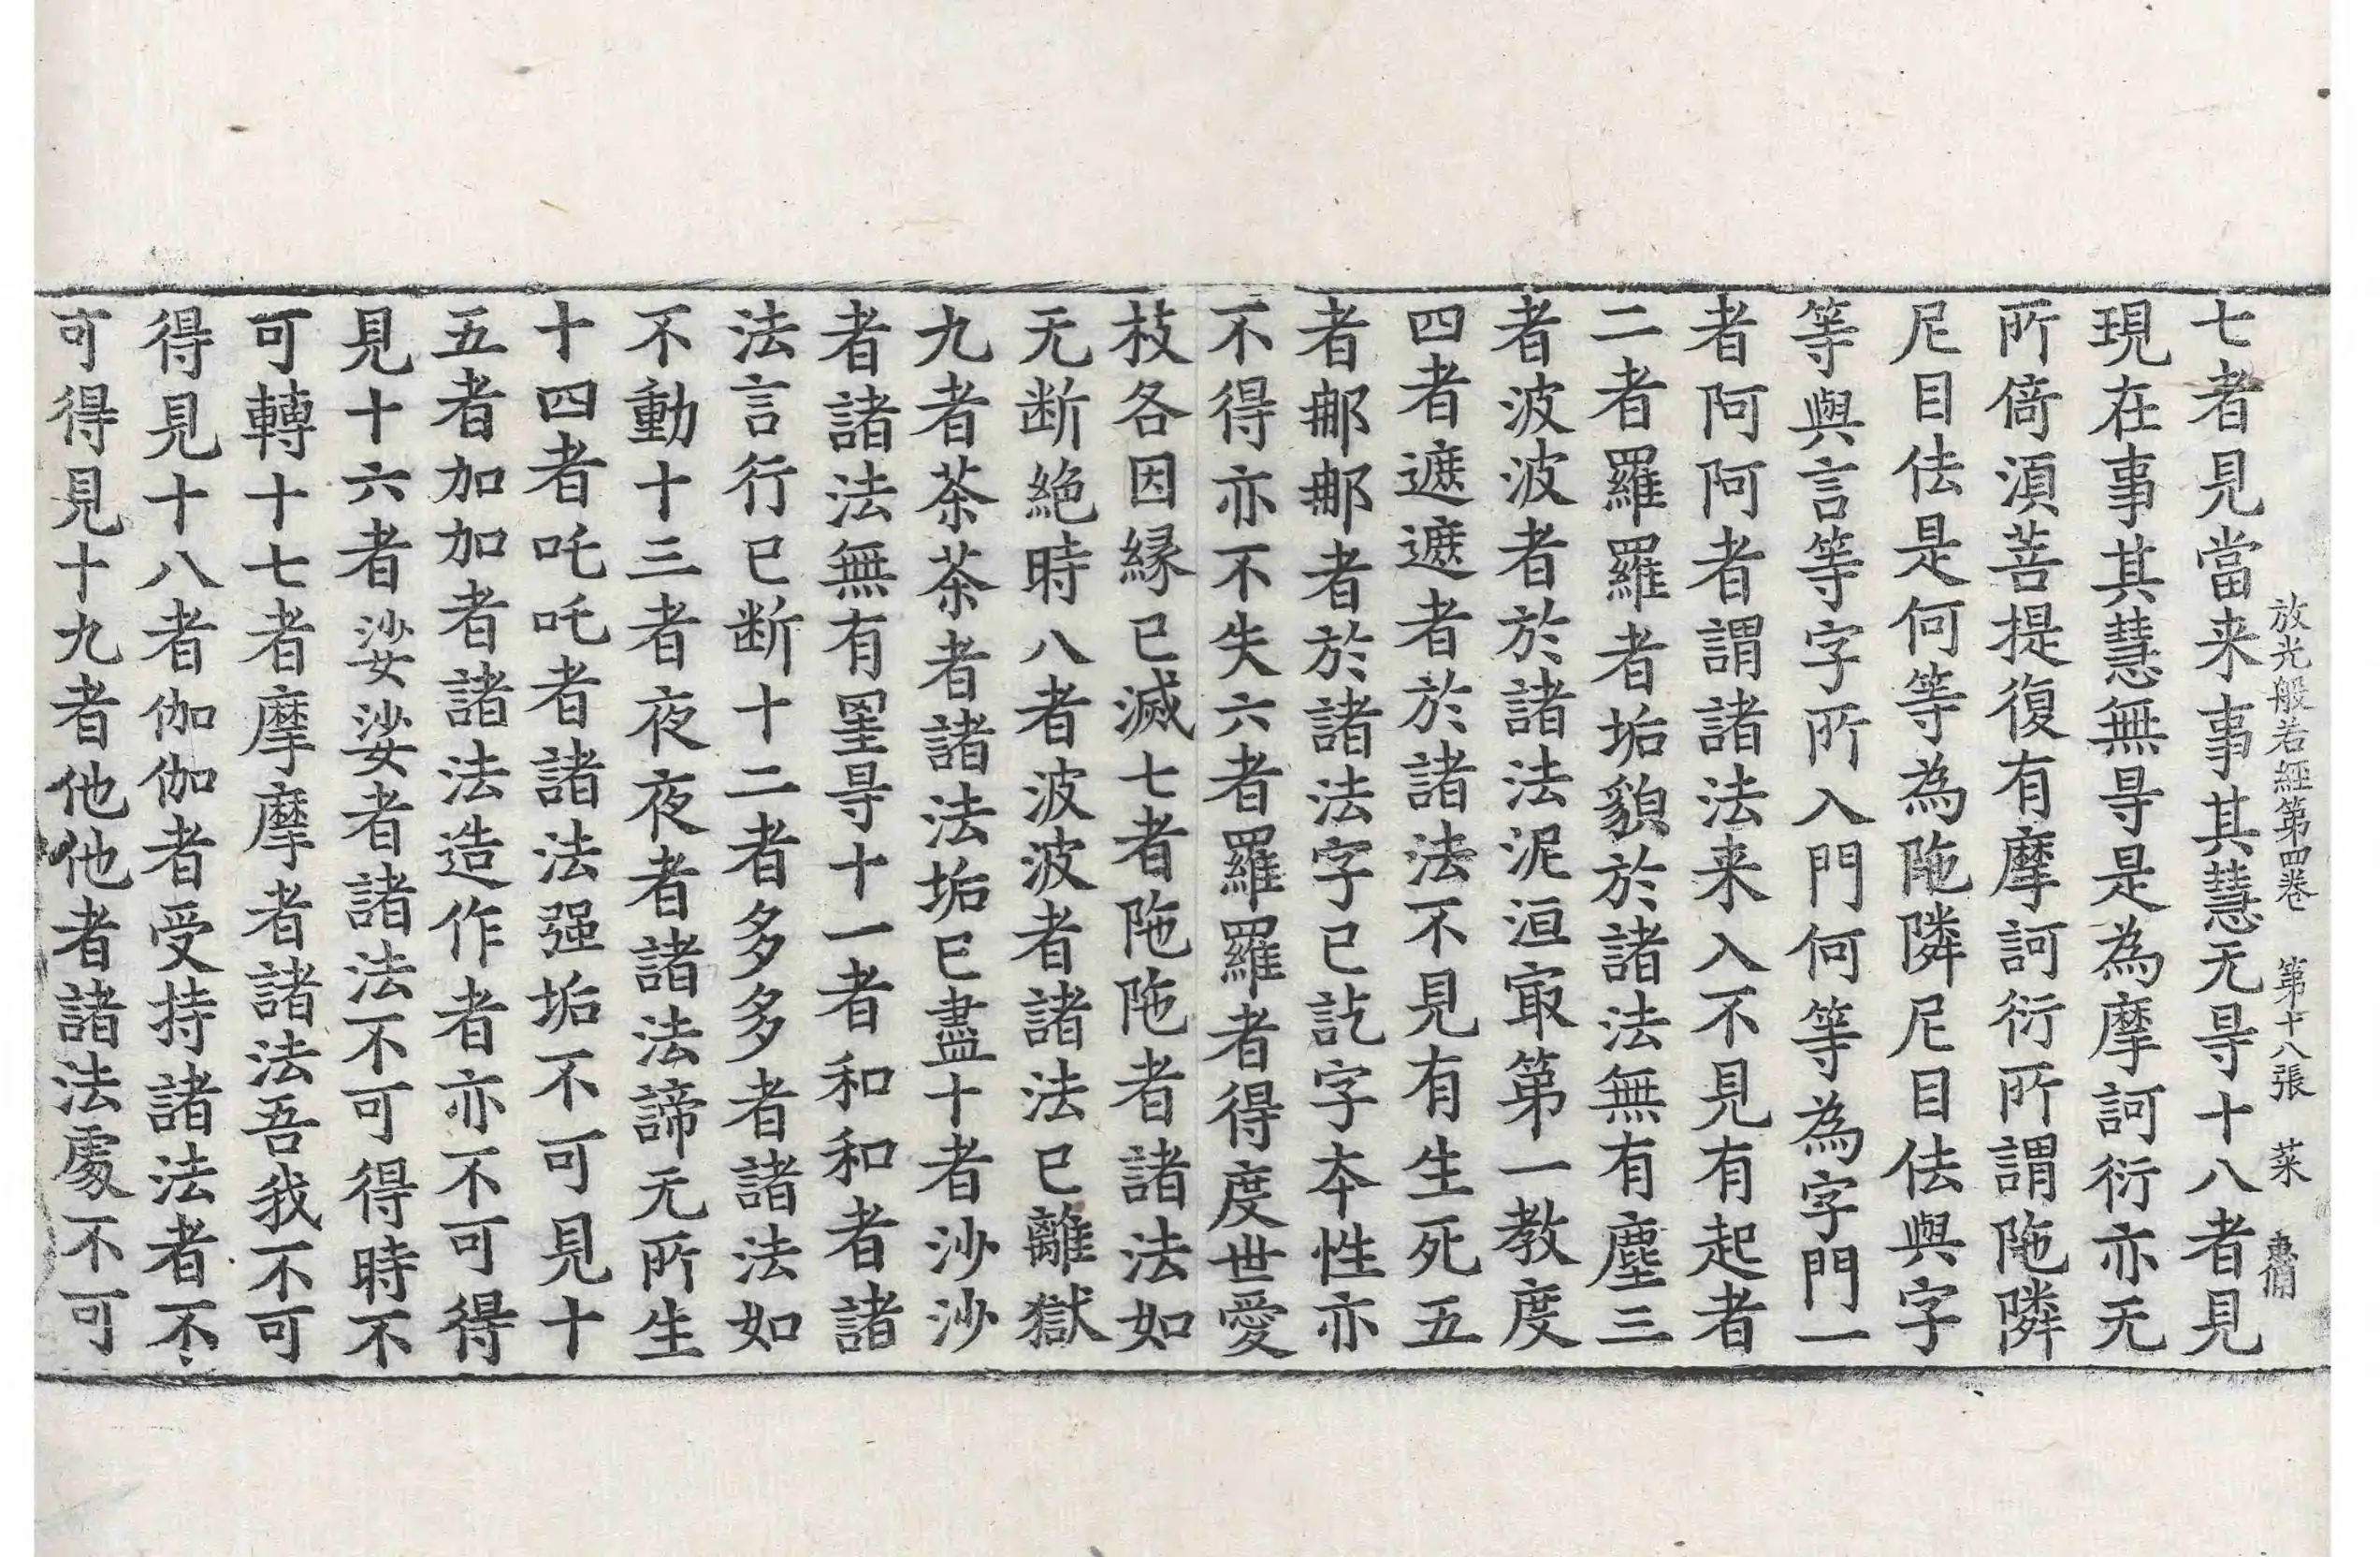 放光般若經第四卷 第十八張 菜
七者見當来事其慧无㝵十八者見
現在事其慧無㝵是為摩訶衍亦无
所倚湏菩提復有摩訶衍所謂陁隣
尼目佉是何等為陁隣尼目佉與字
等與言等字所入門何等為字門一
者阿阿者謂諸法来入不見有起者
二者羅羅者垢貌於諸法無有塵三
者波波者於諸法泥洹㝡第一教度
四者遮遮者於諸法不見有生死五
者䣯䣯者於諸法字已訖字夲性亦
不得亦不失六者羅羅者得度世愛
枝各因縁已滅七者陁陁者諸法如
无断絶時八者波波者諸法已離獄
九者茶茶者諸法垢已盡十者沙沙
者諸法無有罣㝵十一者和和者諸
法言行已断十二者多多者諸法如
不動十三者夜夜者諸法諦无所生
十四者吒吒者諸法强垢不可見十
五者加加者諸法造作者亦不可得
見十六者娑娑者諸法不可得時不
可轉十七者摩摩者諸法吾我不可
得見十八者伽伽者受持諸法者不
可得見十九者他他者諸法處不可